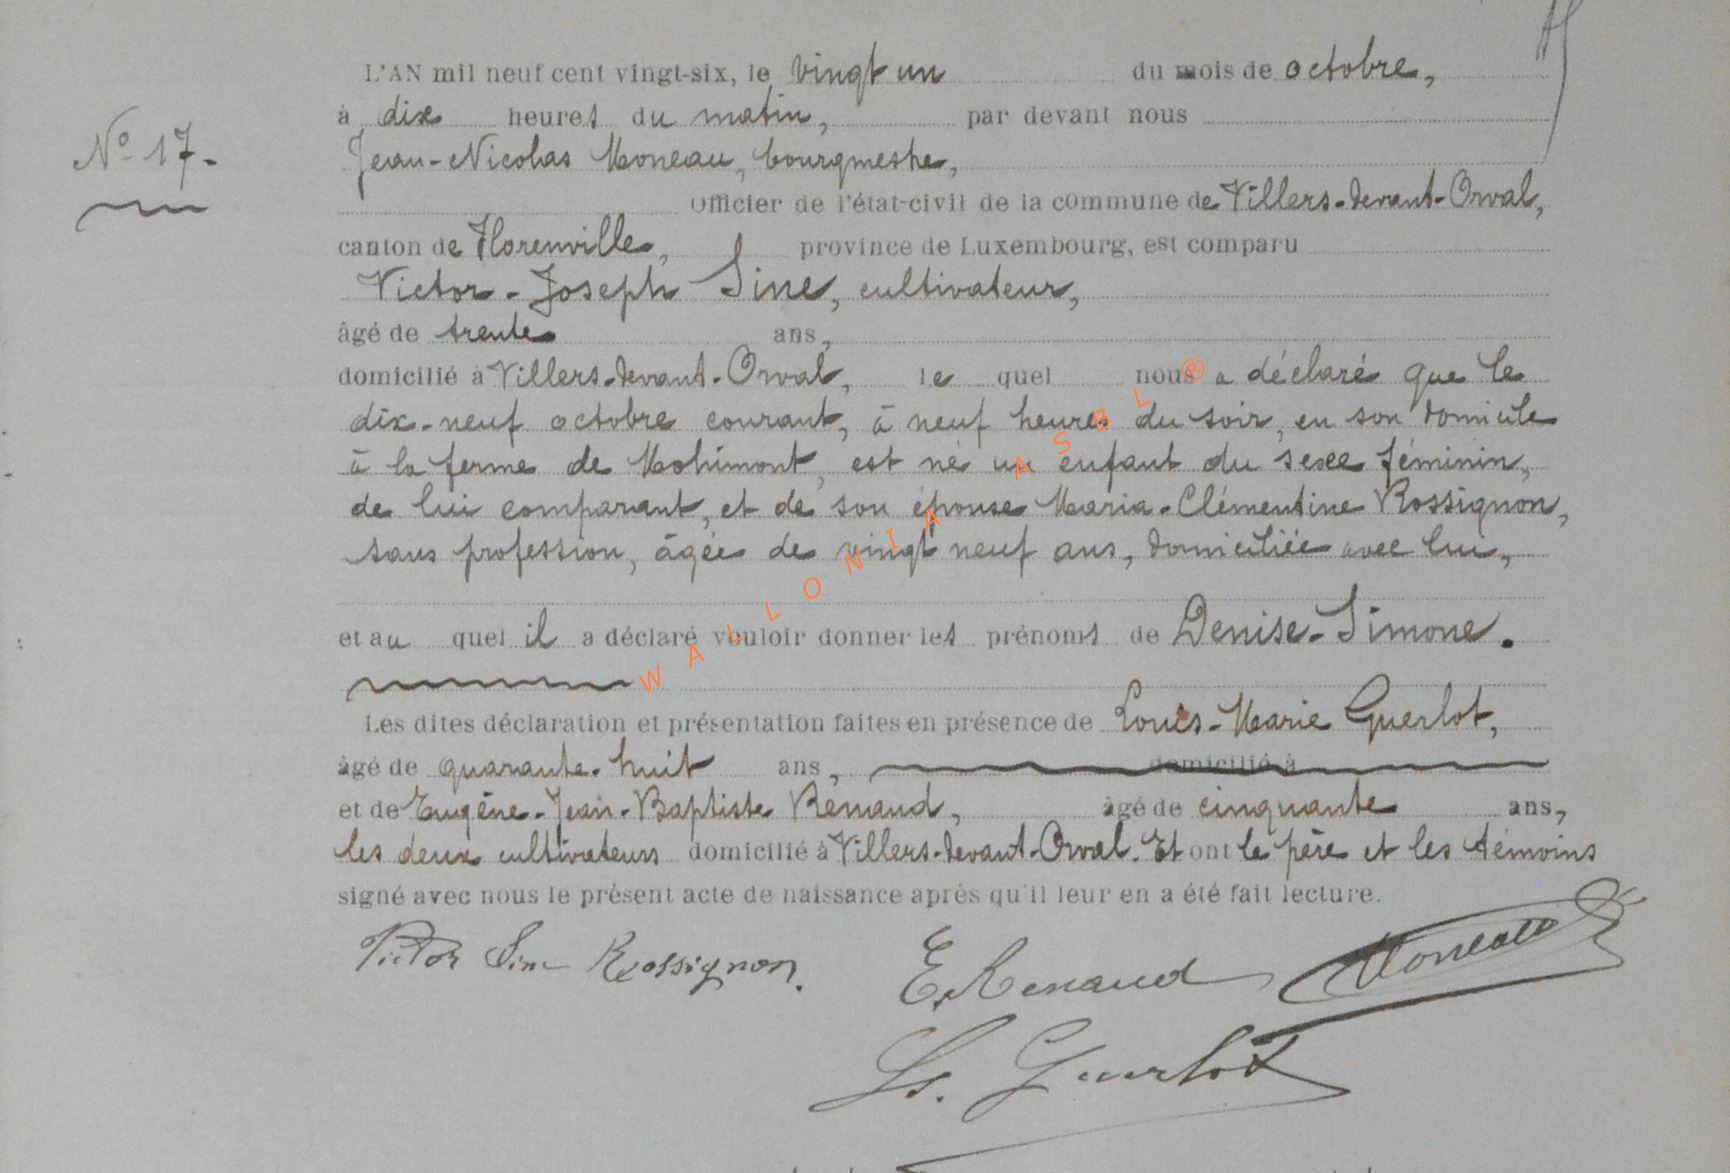 L'AN mil neuf cent vingt-six, le vingt un du mois de octobre,
à dix heures du matin, par devant nous
N° 17.
Jean-Nicolas Moneau, bourgmestre,
Officier de l'état-civil de la commune de Villers-devant-Orval,
canton de Florenville, province de Luxembourg, est comparu
Victor-Joseph Sine, cultivateur,
âgé de trente ans,
domicilié à Villers-devant-Orval, le quel nous a déclaré que le
dix-neuf octobre courant, à neuf heures du soir, en son domicile
à la ferme de Mohimont, est né un enfant du sexe féminin,
de lui comparant, et de son épouse Maria-Clémentine Rossignon,
sans profession, âgée de vingt neuf ans, domiciliée avec lui,
et au quel il a déclaré vouloir donner les prénoms de Denise-Simone.
Les dites déclaration et présentation faites en présence de Louis-Marie Guerlot,
âgé de quarante-huit ans, domicilié à
et de Eugène-Jean-Baptiste Renaud, âgé de cinquante ans,
les deux cultivateurs domicilié à Villers-devant-Orval. Et ont le père et les témoins
signé avec nous le présent acte de naissance après qu'il leur en a été fait lecture.
Victor Sine Rossignon. E. Renaud Moneau
Ls. Guerlot
WALLONIA ASBL ®